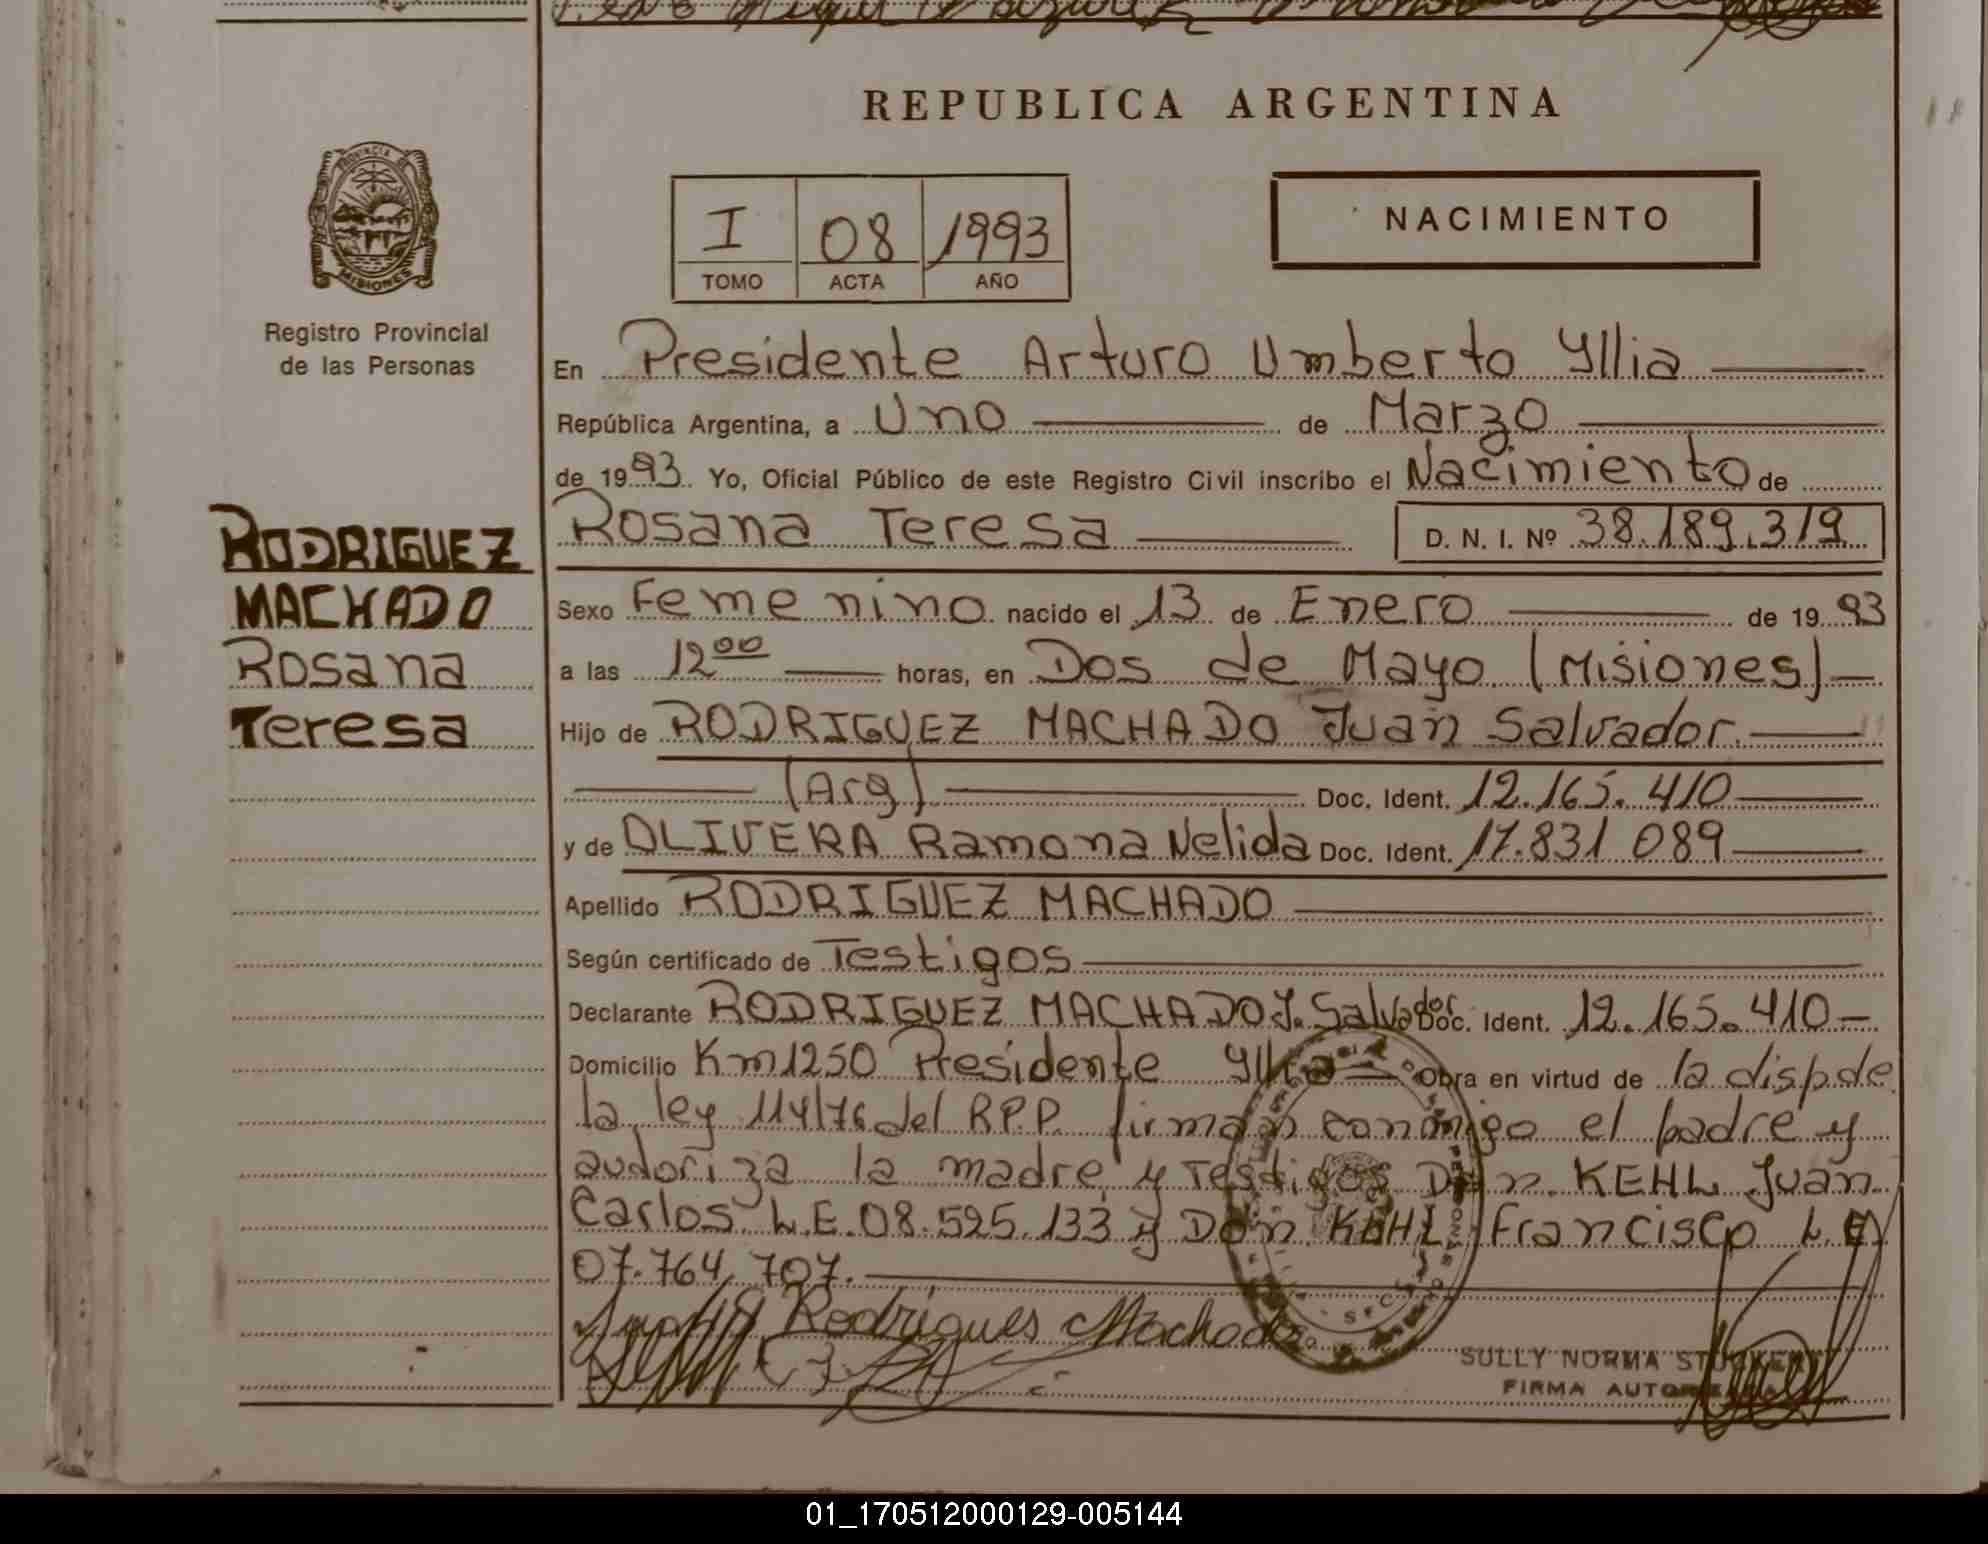 REPUBLICA ARGENTINA
PROVINCIA DE
MISIONES
Registro Provincial
de las Personas
I 08 1993
TOMO ACTA AÑO
NACIMIENTO
En Presidente Arturo Umberto Yllia
República Argentina, a Uno de Marzo
de 1993 Yo, Oficial Público de este Registro Civil inscribo el Nacimiento de
Rosana Teresa D. N. I. Nº 38.189.319
RODRIGUEZ
MACHADO
Rosana
Teresa
Sexo Femenino nacido el 13 de Enero de 1993
a las 12 00 horas, en Dos de Mayo (Misiones)
Hijo de RODRIGUEZ MACHADO Juan Salvador.
(Arg) Doc. Ident. 12.165.410
y de OLIVERA Ramona Nelida Doc. Ident. 17.831 089
Apellido RODRIGUEZ MACHADO
Según certificado de Testigos
Declarante RODRIGUEZ MACHADO J. Salvador Doc. Ident. 12.165.410
Domicilio Km 1250 Presidente Yllia Obra en virtud de la disp de
la ley 114/76 del R.P.P. firman conmigo el padre y
autoriza la madre y Testigos Don KEHL Juan
Carlos L.E. 08.525.133 y Don KEHL Francisco L.E.
07.764.707.
Rodrigues Machado
SULLY NORMA
FIRMA AUTORIZADA
01_170512000129-005144